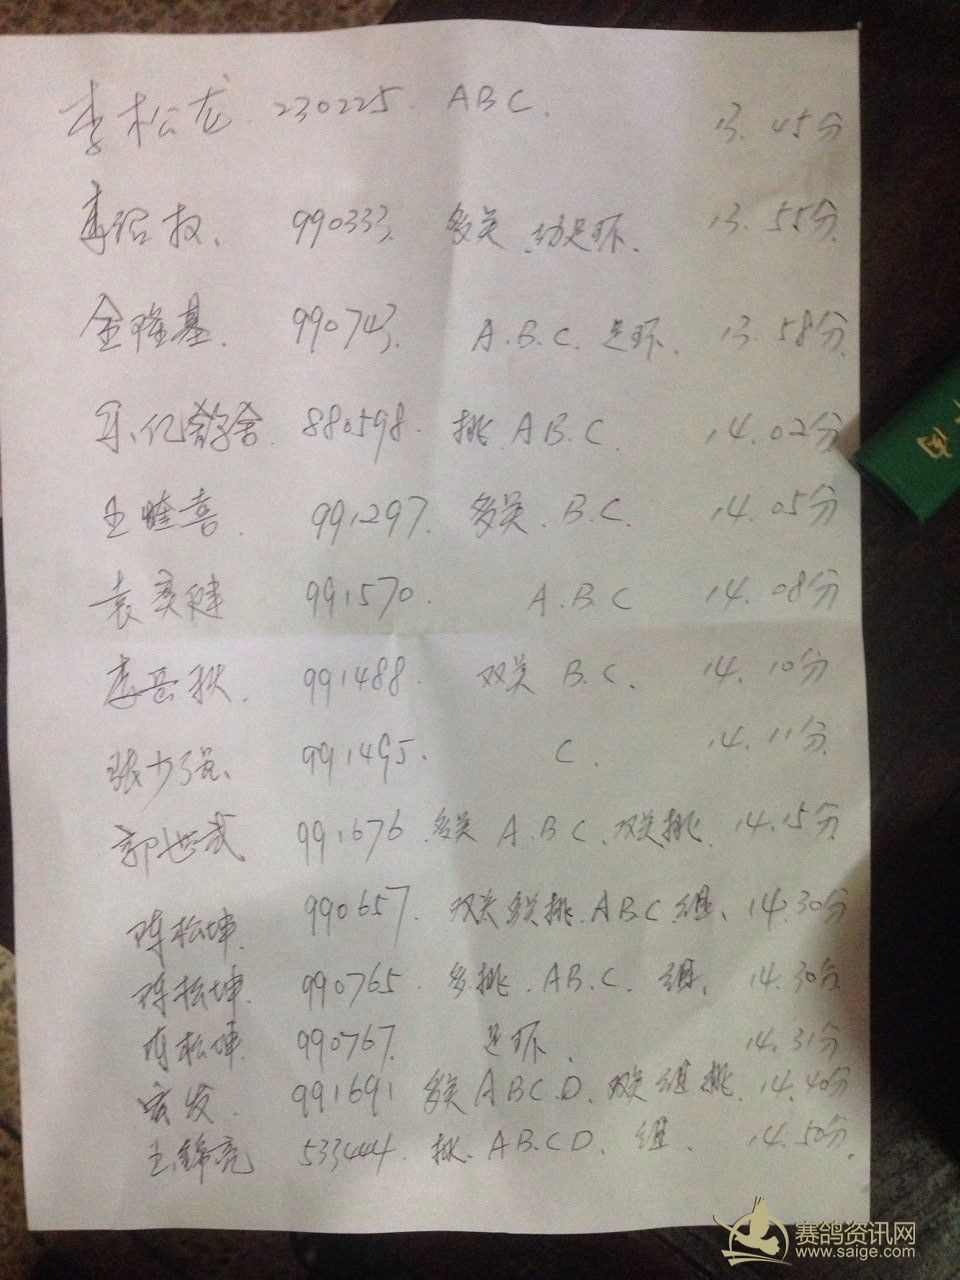 李松龙. 230225. ABC. 13.45分
李绍权. 990333. 多关. 幼足环. 13.55分.
金隆基. 990743. A.B.C. 足环. 13.58分.
亿鸽舍. 880598. 挑. A B.C. 14.02分
王 喜. 991297. 多关. B.C. 14.05分
袁 健 991570. A.B.C 14.08分
李 秋. 991488. 双关 B.C. 14.10分
张少强. 991495. C. 14.11分.
郭世武 991676. 多关 A.B.C. 双关挑. 14.15分
陈松坤. 990657. 双关多关挑. A B C 组. 14.30分
陈松坤. 990765. 多挑. A B.C. 组. 14.30分.
陈松坤. 990767. 足环. 14.31分
宏发. 991691 多关 A B C D. 双关 组 挑. 14.40分
王锦亮 533444. 挑. A B.C D. 组. 14.50分.
赛鸽资讯网
www.saige.com